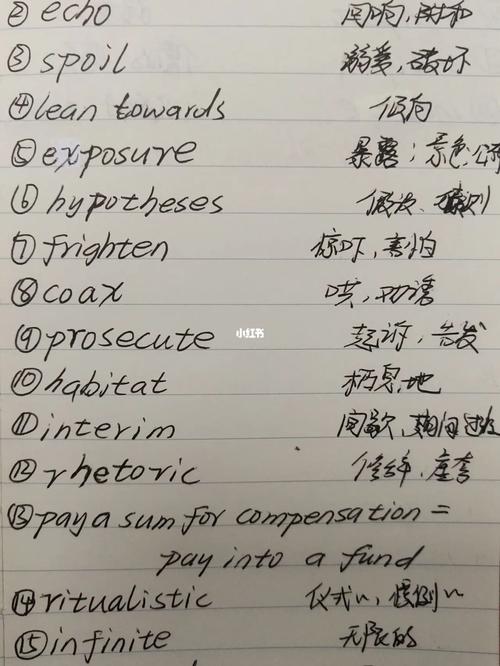 ② echo 回响, 附和
③ spoil 溺爱, 破坏
④ lean towards 倾向
⑤ exposure 暴露; 景色
⑥ hypotheses 假设、猜测
⑦ frighten 惊吓, 害怕
⑧ coax 哄, 劝诱
小红书
⑨ prosecute 起诉, 告发
⑩ habitat 栖息地
⑪ interim 间歇, 期间
⑫ rhetoric 修辞, 
⑬ pay a sum for compensation =
pay into a fund
⑭ ritualistic 仪式~, 惯例~
⑮ infinite 无限的